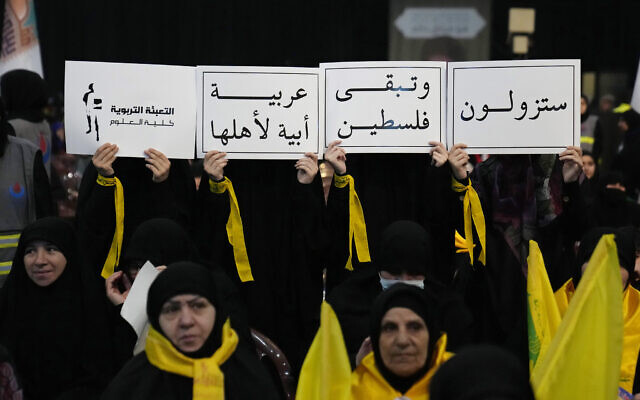 ستزولون
وتبقى
فلسطين
عربية
أبية لأهلها
التعبئة التربوية
كلية العلوم